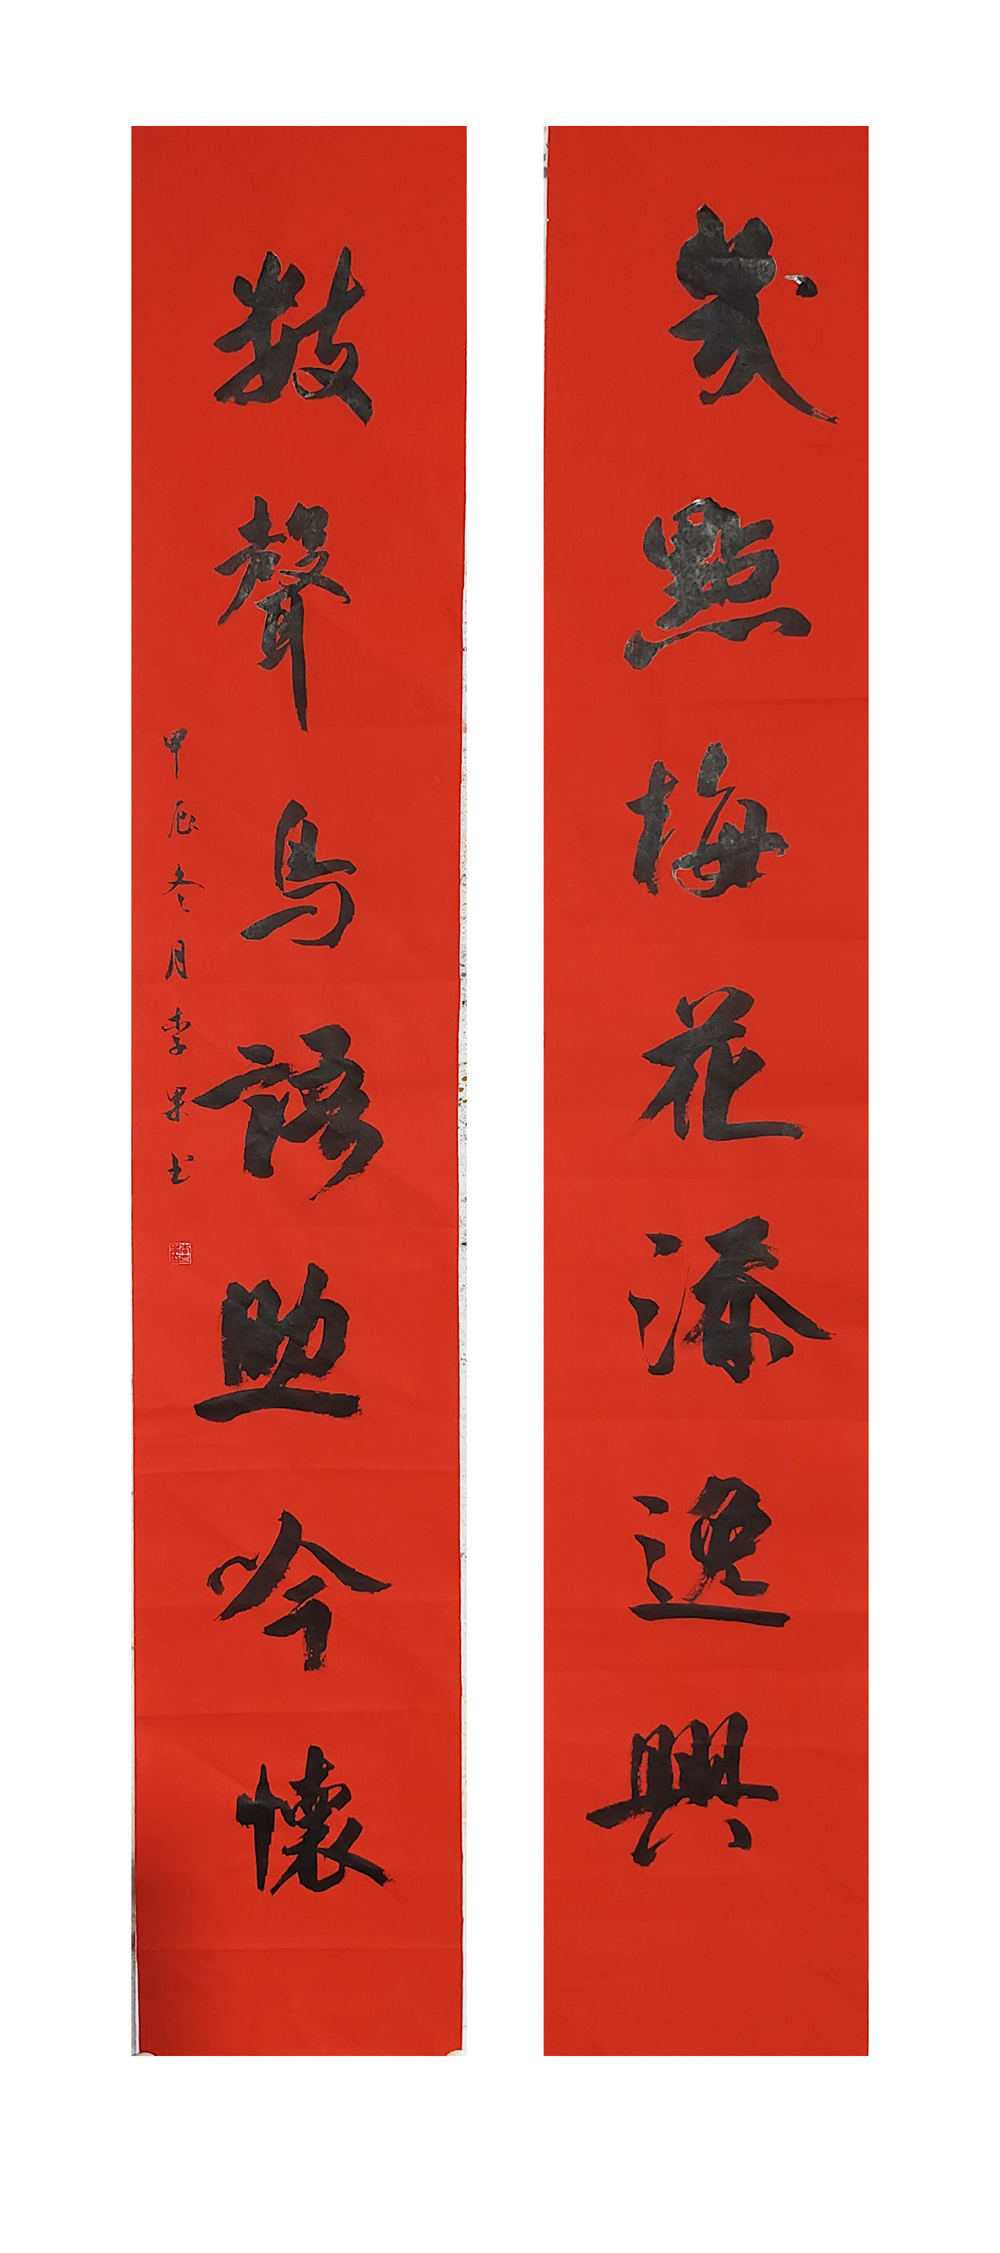 幾點梅花添逸興
數聲鳥語助吟懷
甲辰冬月李果书